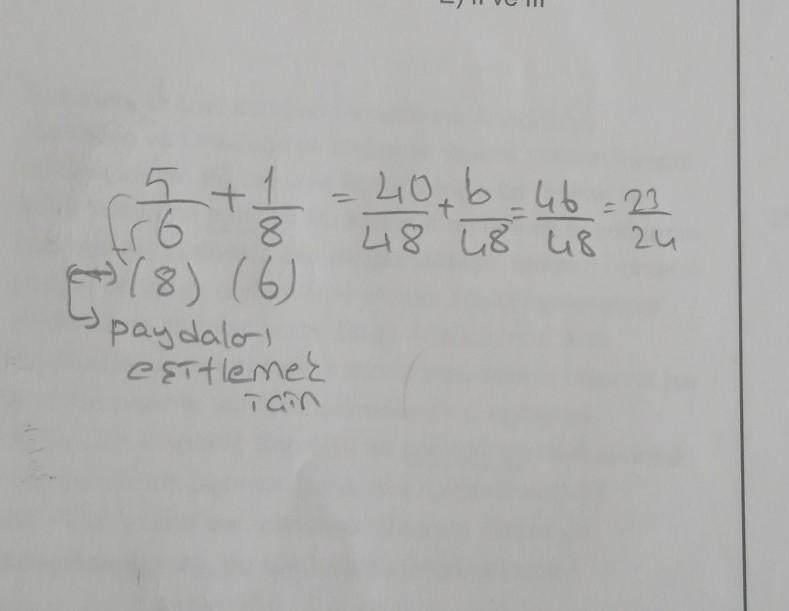 5/6 + 1/8 = 40/48 + 6/48 = 46/48 = 23/24
(8) (6)
paydaları
eşitlemek
için